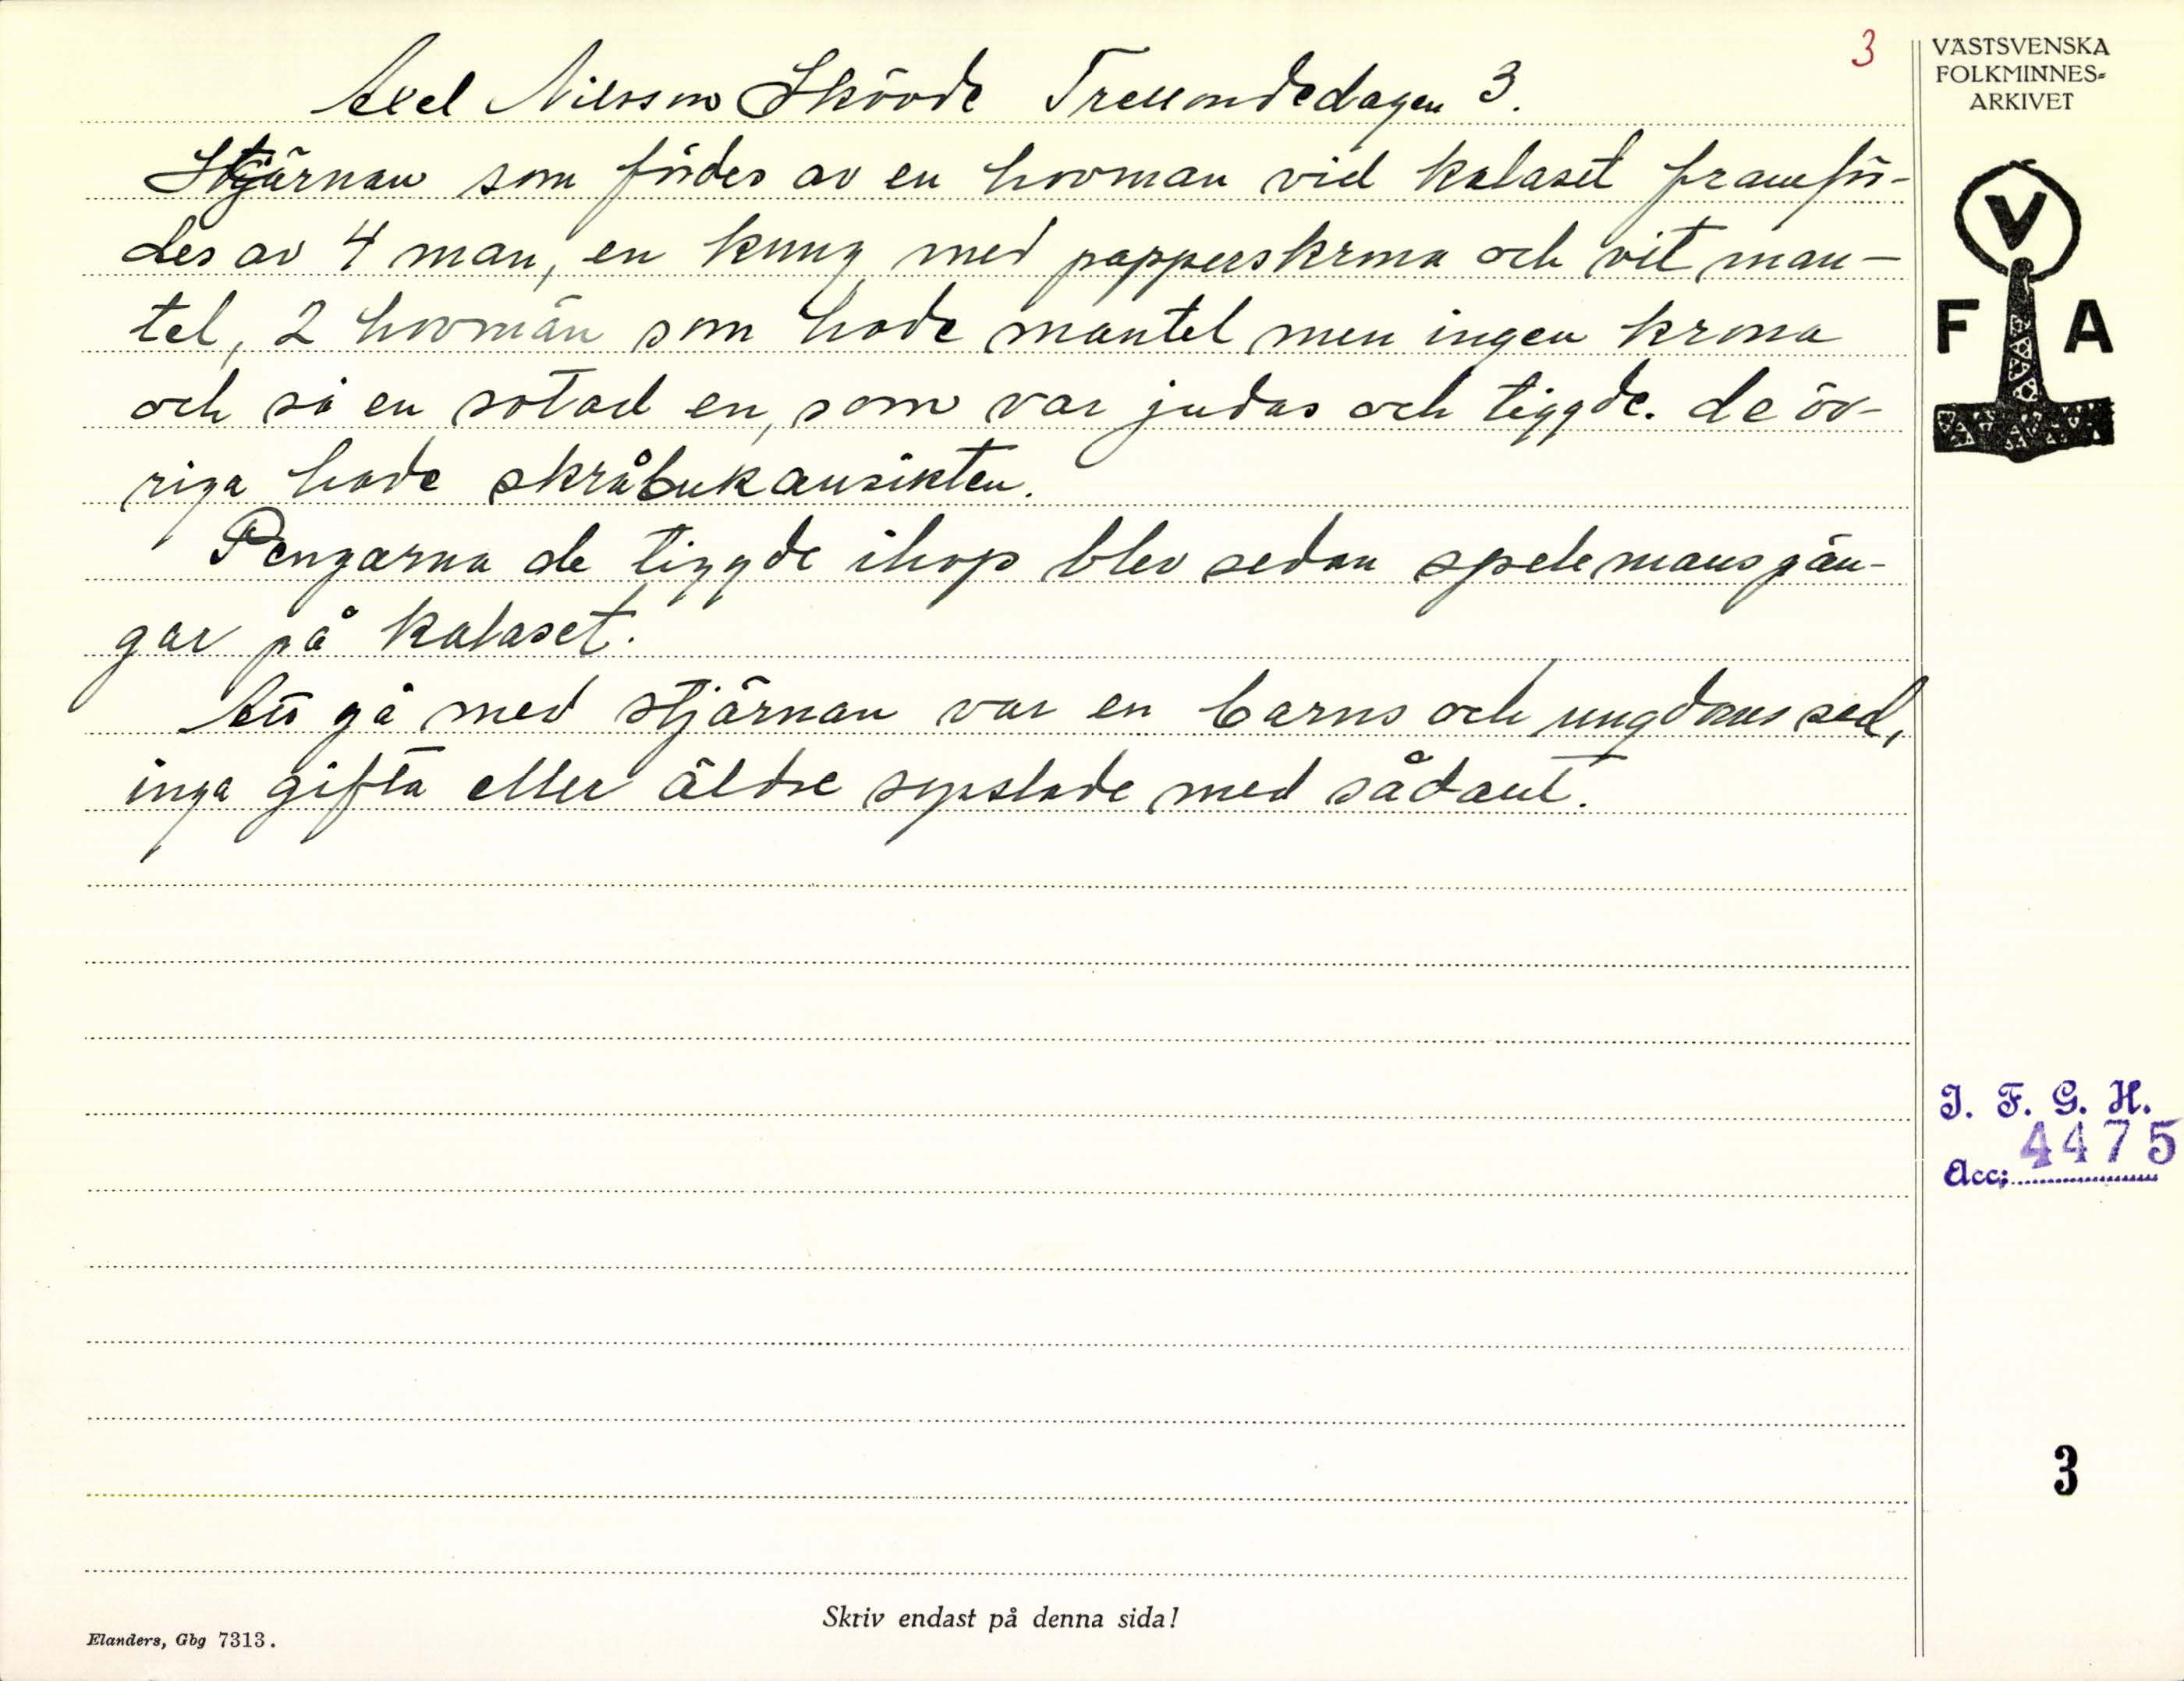 3
VÄSTSVENSKA
FOLKMINNES-
ARKIVET
Axel Nilsson Skövde Trettondedagen 3.
Stjärnan som fördes av en hovman vid kalaset framför-
des av 4 man, en kung med papperskrona och vit man-
tel, 2 hovmän som hade mantel men ingen krona
och så en sotad en, som var judas och tiggde. de öv-
riga hade skråbukansikten.
Pengarna de tiggde ihop blev sedan spelemanspän-
gar på kalaset.
Att gå med stjärnan var en barns och ungdoms sed,
inga gifta eller äldre sysslade med sådant.
V
F A
I. F. G. H.
Acc: 4475
3
Skriv endast på denna sida!
Elanders, Gbg 7313.